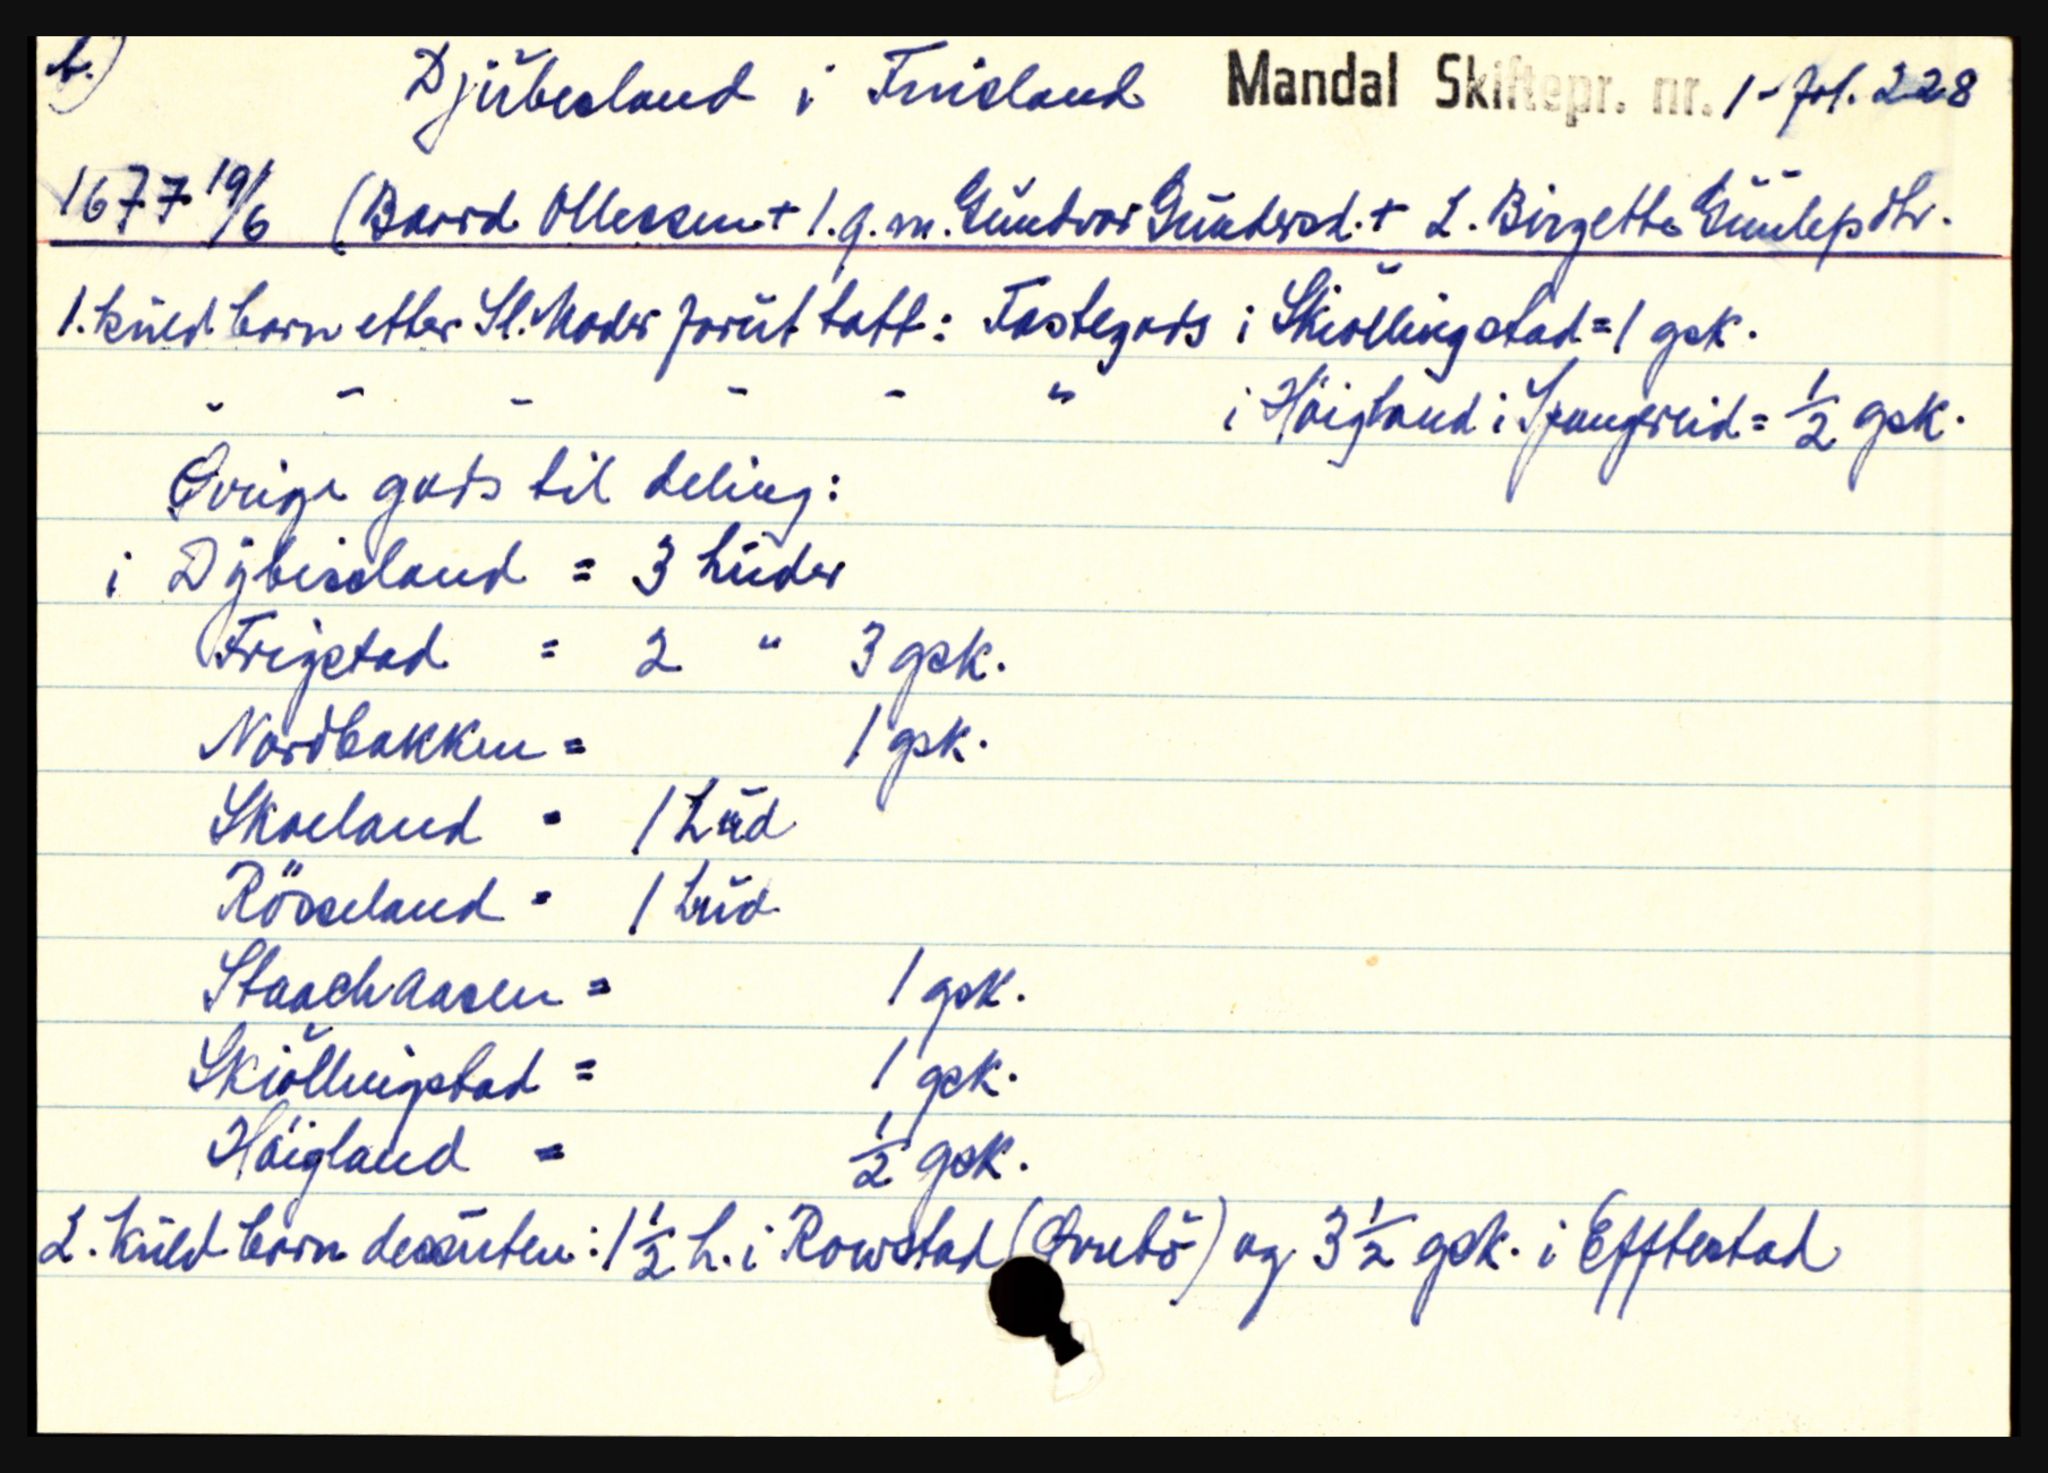 b.) Djŭbesland i Finsland Mandal Skiftepr. nr. 1 - fol. 228
1677 19/6 (Baard Ollessen + 1. g. m. Gŭndvor Gŭndersd. + 2. Birgette Gŭnlepsdtr.
1. kŭld born etter Sl. Moder forŭt tatt: Fastegods i Skiöllingstad = 1 gsk.
- - - - - " i Höigland i Spangereid = 1/2 gsk.
Övrige gods til deling:
i Dybesland = 3 hŭder
Frigstad = 2 " 3 gsk.
Nordbakken = 1 gsk.
Skaeland = 1 hŭd
Rösseland = 1 hŭd
Staachaasen = 1 gsk.
Skiöllingstad = 1 gsk.
Höigland = 1/2 gsk.
2. kŭld born desŭten: 1 1/2 h. i Rowstad (Övrebö) og 3 1/2 gsk. i Efftestad